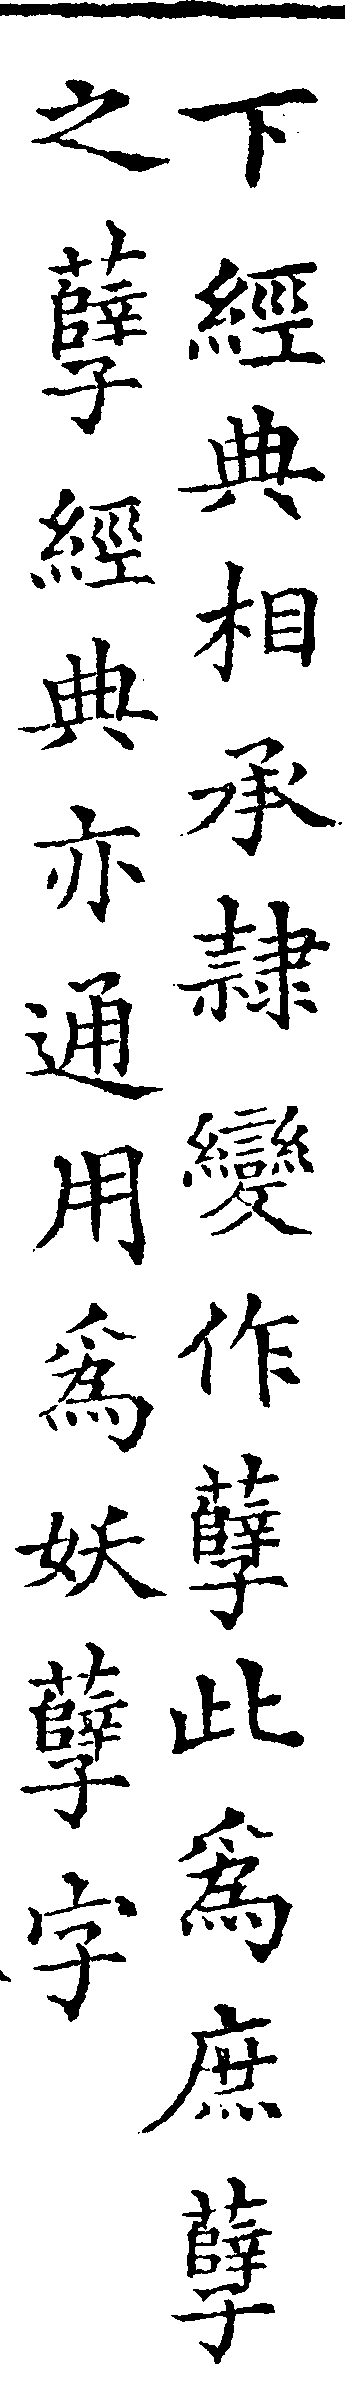 下經典相承隷變作孽此爲庶孽
之孽經典亦通用爲妖孽字